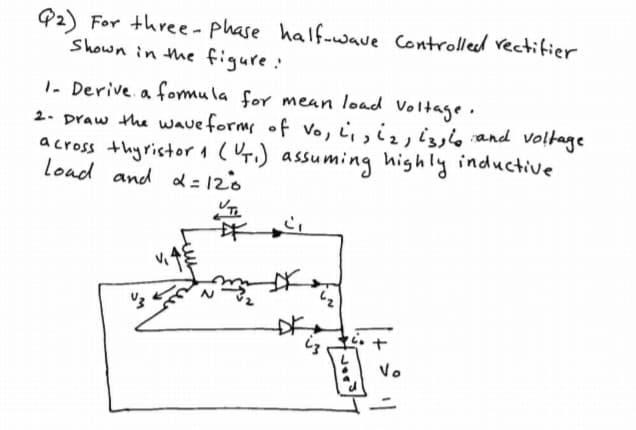 Q2) For three-phase half-wave Controlled rectifier
Shown in the figure:
1- Derive a formula for mean load Voltage.
2- Draw the waveforms of Vo, i1, i2, i3, io and voltage
across thyristor 1 (VT1) assuming highly inductive
Load and α=120°
VT1
i1
V1
N
V2
i2
V3
i3
io
+
Load
Vo
-